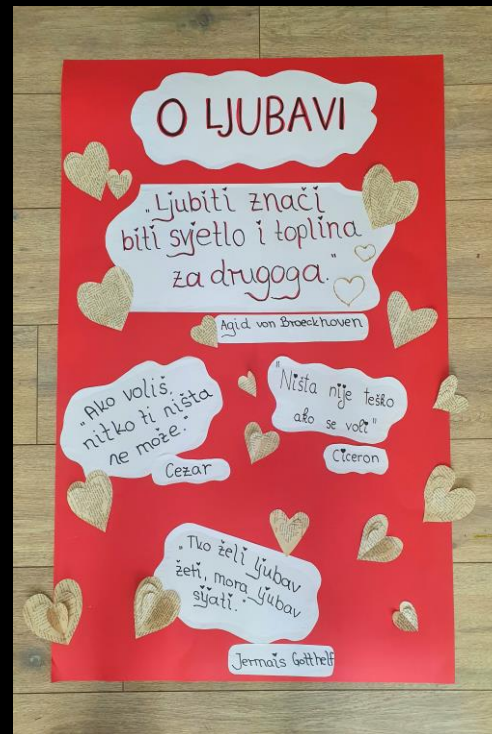 O LJUBAVI
"Ljubiti znači
biti svjetlo i toplina
za drugoga."
Agid von Broeckhoven
"Ako voliš,
nitko ti ništa
ne može."
Cezar
"Ništa nije teško
ako se voli"
Ciceron
"Tko želi ljubav
žeti, mora ljubav
sijati."
Jermais Gotthelf